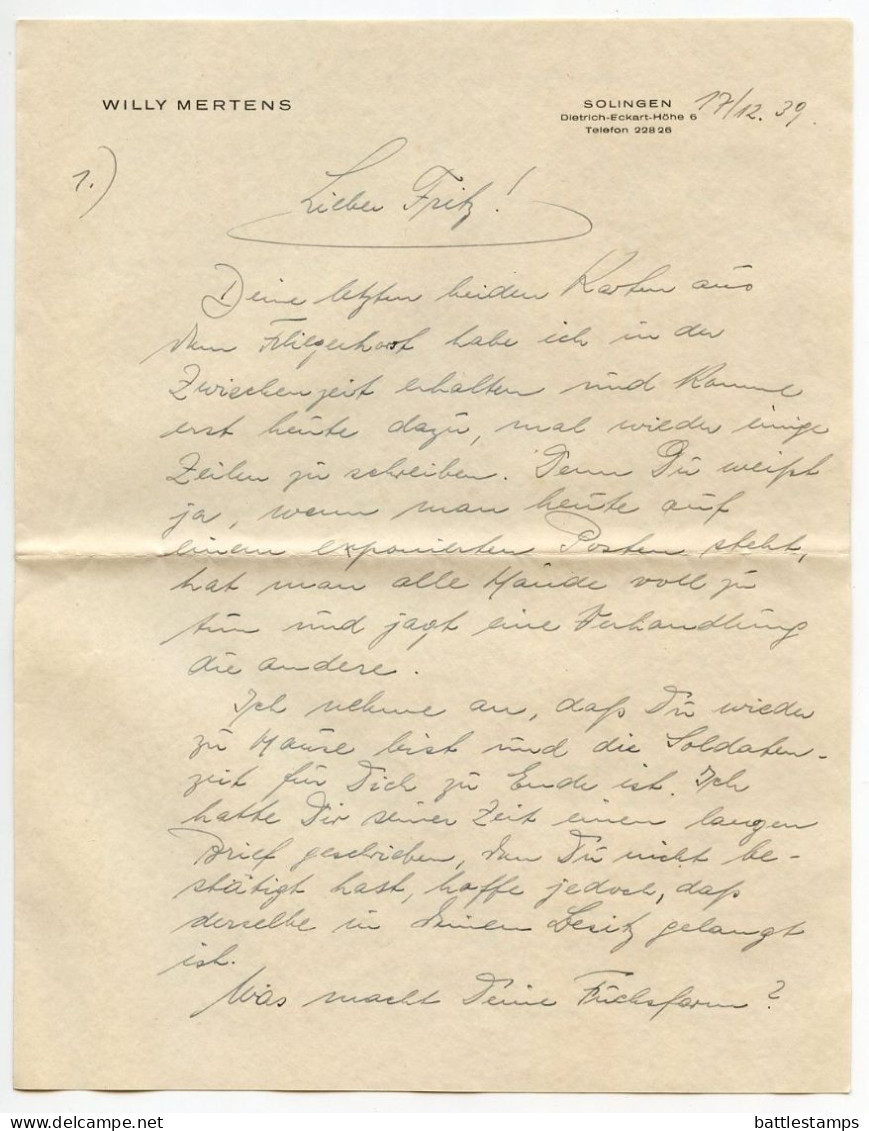 WILLY MERTENS
SOLINGEN 17/12.39.
Dietrich-Eckart-Höhe 6
Telefon 22826
1.)
Lieber Fritz!
Deine letzten beiden Karten aus
dem Fliegerhorst habe ich in der
Zwischenzeit erhalten und komme
erst heute dazu, mal wieder einige
Zeilen zu schreiben. Denn Du weißt
ja, wenn man heute auf
einem exponierten Posten steht,
hat man alle Hände voll zu
tun und jagt eine Verhandlung
die andere.
Ich nehme an, daß Du wieder
zu Hause bist und die Soldaten-
zeit für Dich zu Ende ist. Ich
hatte Dir seiner Zeit einen langen
Brief geschrieben, den Du nicht be-
stätigt hast, hoffe jedoch, daß
derselbe in Deinen Besitz gelangt
ist.
Was macht Deine Fuchsfarm?
delcampe.net
battlestamps